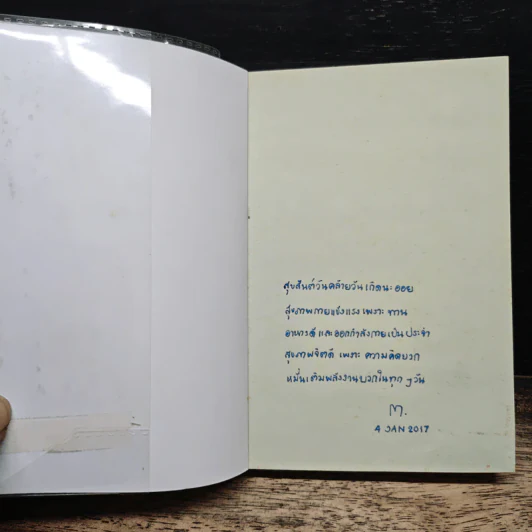 สุขสันต์วันคล้ายวันเกิดนะ ออย
สุขภาพกายแข็งแรง เพราะ ทาน
อาหารดี และ ออกกำลังกายเป็น ประจำ
สุขภาพจิตดี เพราะ ความคิดบวก
หมั่นเติมพลังงานบวกในทุก ๆ วัน
4 JAN 2017